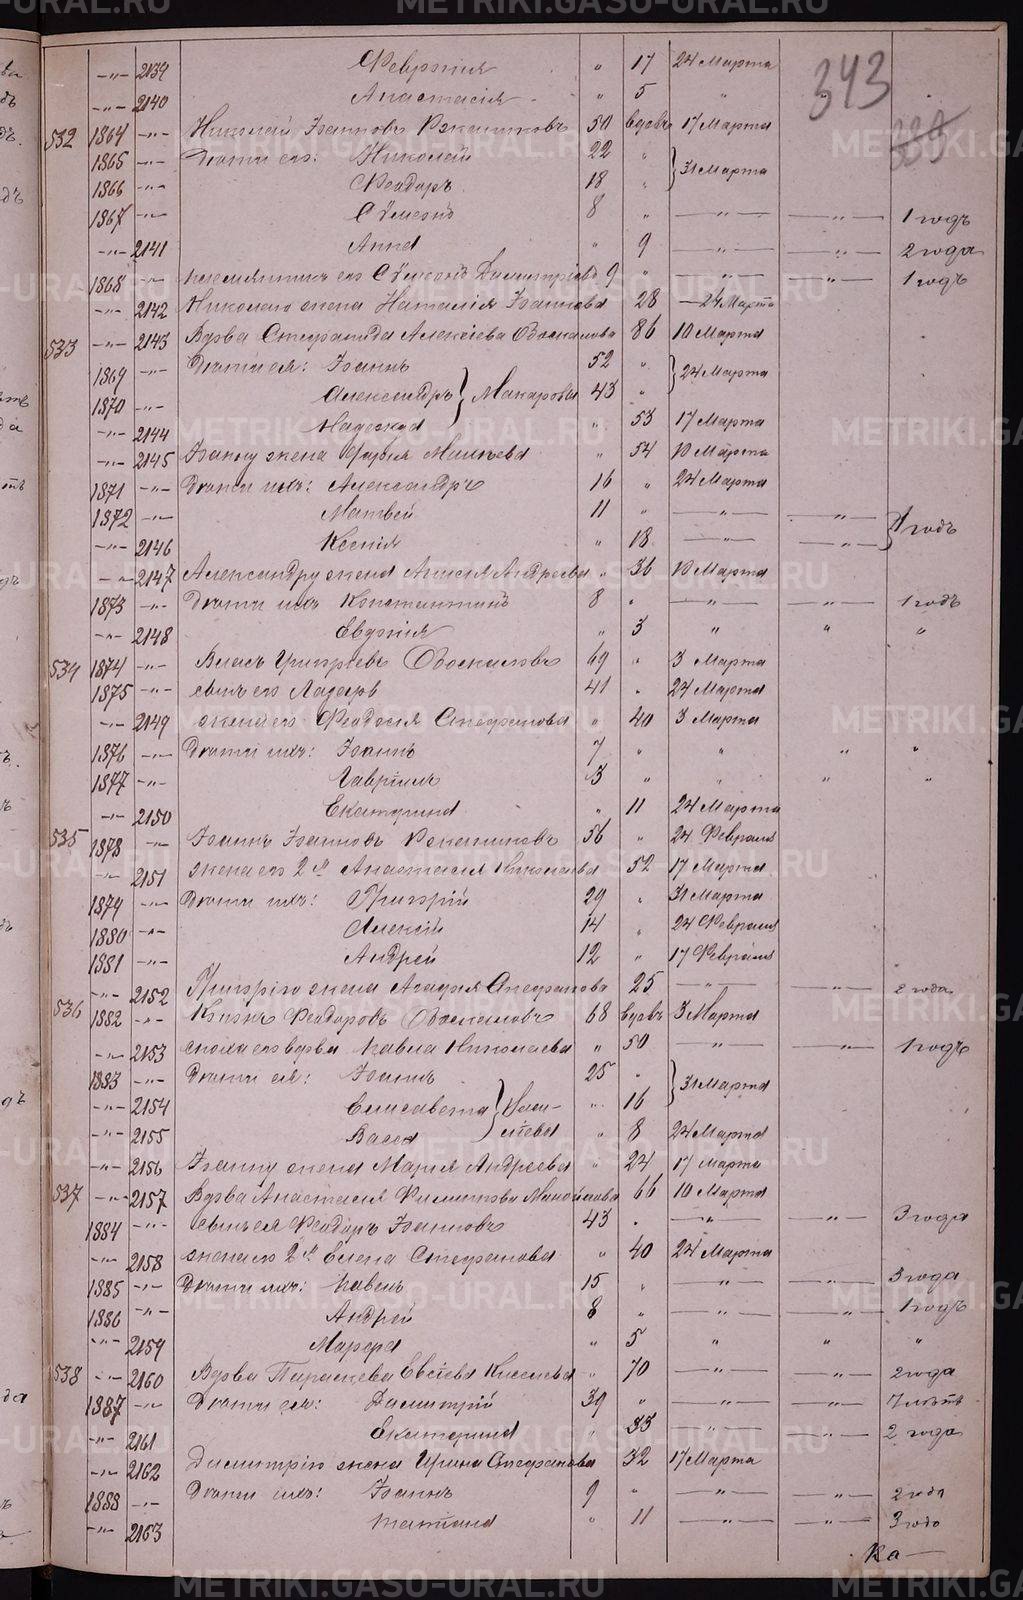 343
339
-"- 2139 Феврония " 17 24 Марта
-"- 2140 Анастасія " 5 "
532 1864 -"- Николай Іоанновъ 50 вдовъ 17 Марта
1865 -"- Дѣти его: Николай 22 " } 31 Марта
1866 -"- Ѳеодоръ 18 "
1867 -"- Сѵмеонъ 8 " —"— —"— 1 годъ
-"- 2141 Анна " 9 —"— —"— 2 года
1868 -"- племянникъ его Сѵмеонъ Димитріевъ 9 " —"— —"— 1 годъ
-"- 2142 Николаю жена Наталія Іоаннова 28 — 24 Марта
533 -"- 2143 Вдова Стефанида Алексіева 86 10 Марта
1869 -"- Дѣти ея: Іоаннъ 52 " } 24 Марта
1870 -"- Александръ } Макаровы 43 "
-"- 2144 Надежда " 53 17 Марта
-"- 2145 Іоанну жена " 54 10 Марта
1871 -"- Дѣти ихъ: Александръ 16 " 24 Марта
1872 -"- Матвей 11 " —"— —"— } 1 годъ
-"- 2146 Ксенія " 18 —"— —"—
-"- 2147 Александру жена Анисія Андреева " 36 10 Марта
1873 -"- Дѣти ихъ Константинъ 8 " —"— —"— 1 годъ
-"- 2148 Евдокія " 3 " " "
534 1874 -"- Власъ Григорьевъ 69 " 3 Марта
1875 -"- сынъ его Лазарь 41 " 24 Марта
-"- 2149 жена его Ѳеодосія Стефанова " 40 3 Марта
1876 -"- Дѣти ихъ: Іоаннъ 7 " " " "
1877 -"- Гавріилъ 3 " " " "
-"- 2150 Екатерина " 11 24 Марта
535 1878 -"- Іоаннъ Іоанновъ 56 " 24 Февраля
-"- 2151 жена его 2я Анастасія Николаева 52 17 Марта
1879 -"- Дѣти ихъ: Григорій 29 " 31 Марта
1880 -"- Алексій 14 " 24 Февраля
1881 -"- Андрей 12 " 17 Февраля
-"- 2152 Григорію жена Агафія Стефанова 25 —"— —"— 2 года
536 1882 -"- Ѳеодоровъ 68 вдовъ 3 Марта
-"- 2153 сноха его вдова Павла Николаева " 50 —"— —"— 1 годъ
1883 -"- Дѣти ея: Іоаннъ 25 " } 31 Марта
-"- 2154 Елисавета } " 16
-"- 2155 Васса " 8 24 Марта
-"- 2156 Іоанну жена Марія Андреева " 24 17 Марта
537 -"- 2157 Вдова Анастасія Филиппова 66 10 Марта
1884 -"- сынъ ея Ѳеодоръ Іоанновъ 43 " —"— —"— 3 года
-"- 2158 жена его 2я Елена Стефанова " 40 24 Марта
1885 -"- Дѣти ихъ: Павелъ 15 " —"— —"— 3 года
1886 -"- Андрей 8 " —"— —"— 1 годъ
-"- 2159 Марфа " 5 " " "
538 -"- 2160 Вдова Параскева " 70 —"— 2 года
1887 -"- Дѣти ея: Димитрій 39 " —"— —"— 7 лѣтъ
-"- 2161 Екатерина " 33 —"— —"— 2 года
-"- 2162 Димитрію жена Ирина Стефанова 32 17 Марта
1888 -"- Дѣти ихъ: Іоаннъ 9 " —"— —"— 2 года
-"- 2163 Татіана " 11 —"— —"— 3 годо
Ка—
METRIKI.GASO-URAL.RU